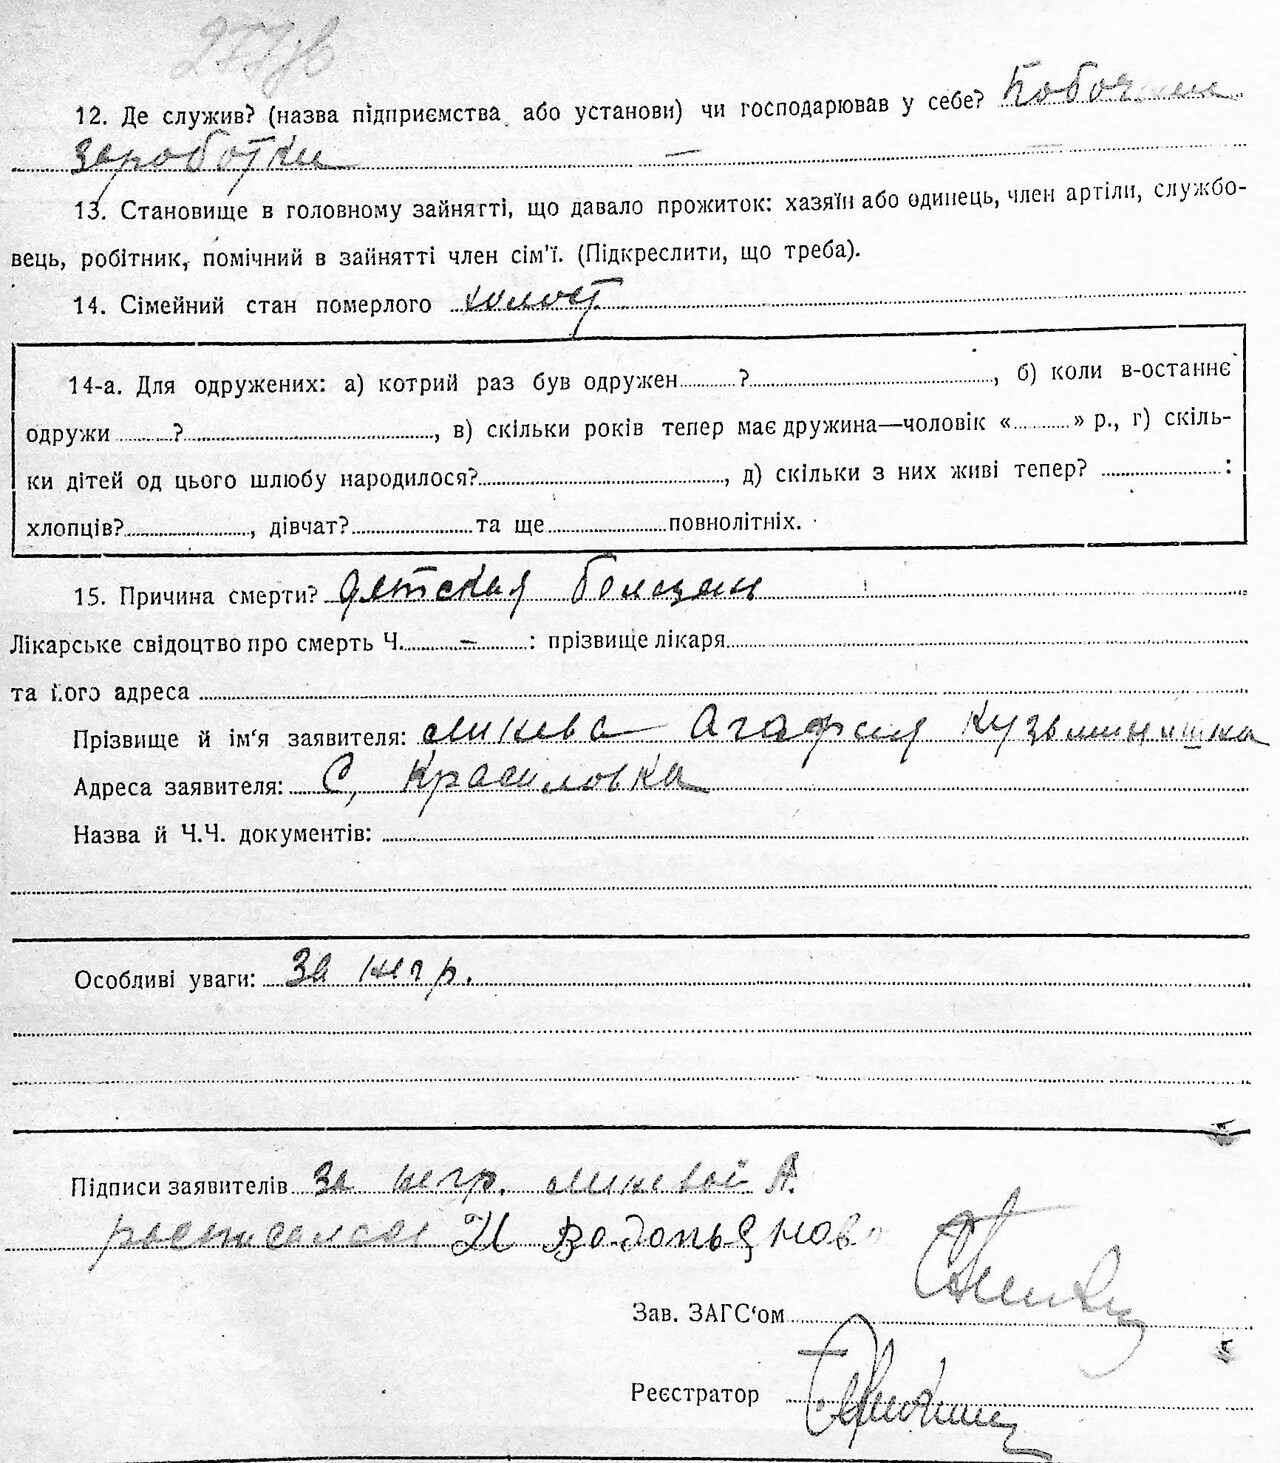 12. Де служив? (назва підприємства або установи) чи господарював у себе? Побочные
заработки —
13. Становище в головному зайнятті, що давало прожиток: хазяїн або одинець, член артіли, службо-
вець, робітник, помічний в зайнятті член сім'ї. (Підкреслити, що треба).
14. Сімейний стан померлого холост
14-а. Для одружених: а) котрий раз був одружен ? , б) коли в-останнє
одружи ? , в) скільки років тепер має дружина—чоловік « » р., г) скіль-
ки дітей од цього шлюбу народилося? , д) скільки з них живі тепер? :
хлопців? , дівчат? та ще повнолітніх.
15. Причина смерти? Детская болезнь
Лікарське свідоцтво про смерть Ч. – : прізвище лікаря
та його адреса
Прізвище й ім'я заявителя: Агафия Кузьминишна
Адреса заявителя: С, Красиловка
Назва й Ч.Ч. документів:
Особливі уваги: За негр.
Підписи заявителів За негр. А.
расписался И Водопьянов
Зав. ЗАГС'ом
Реєстратор